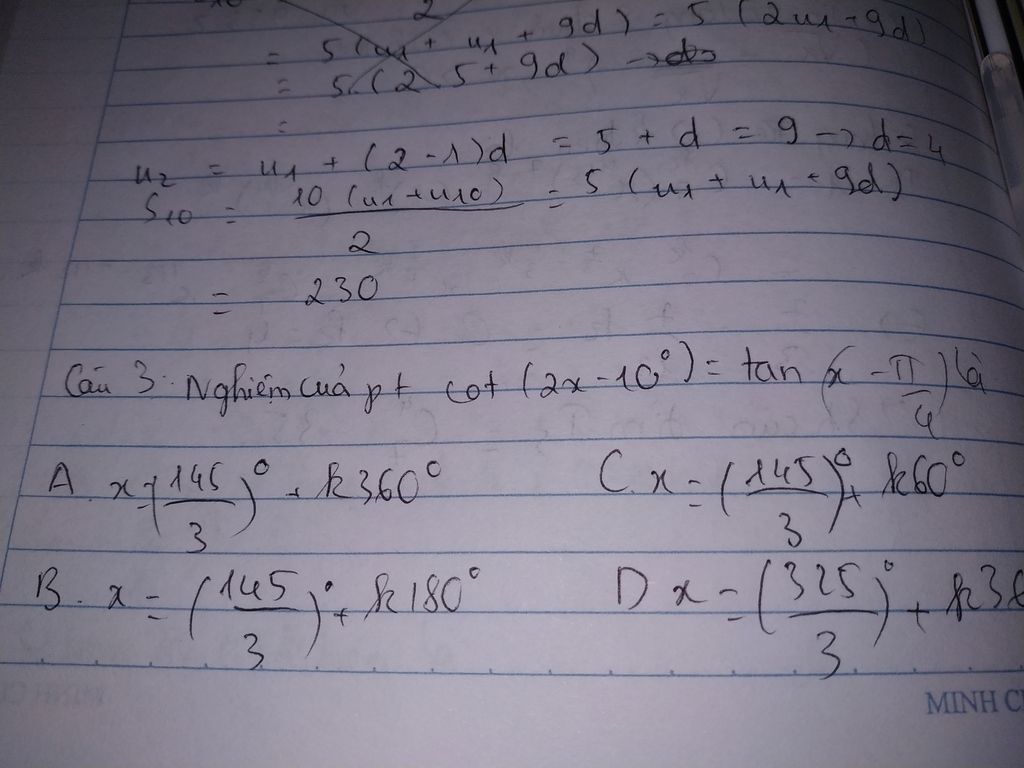 2
= 5 (u1 + u1 + 9d) = 5 (2u1 + 9d)
= 5 (2.5 + 9d)
=
u2 = u1 + (2-1)d = 5 + d = 9 → d = 4
S10 = 10 (u1 + u10) / 2 = 5 (u1 + u1 + 9d)
= 230
Câu 3: Nghiệm cuả pt cot (2x - 10°) = tan (x - π/4) là
A. x = (145/3)° + k360° C. x = (145/3)° + k60°
B. x = (145/3)° + k180° D x = (325/3)° + k36
MINH C